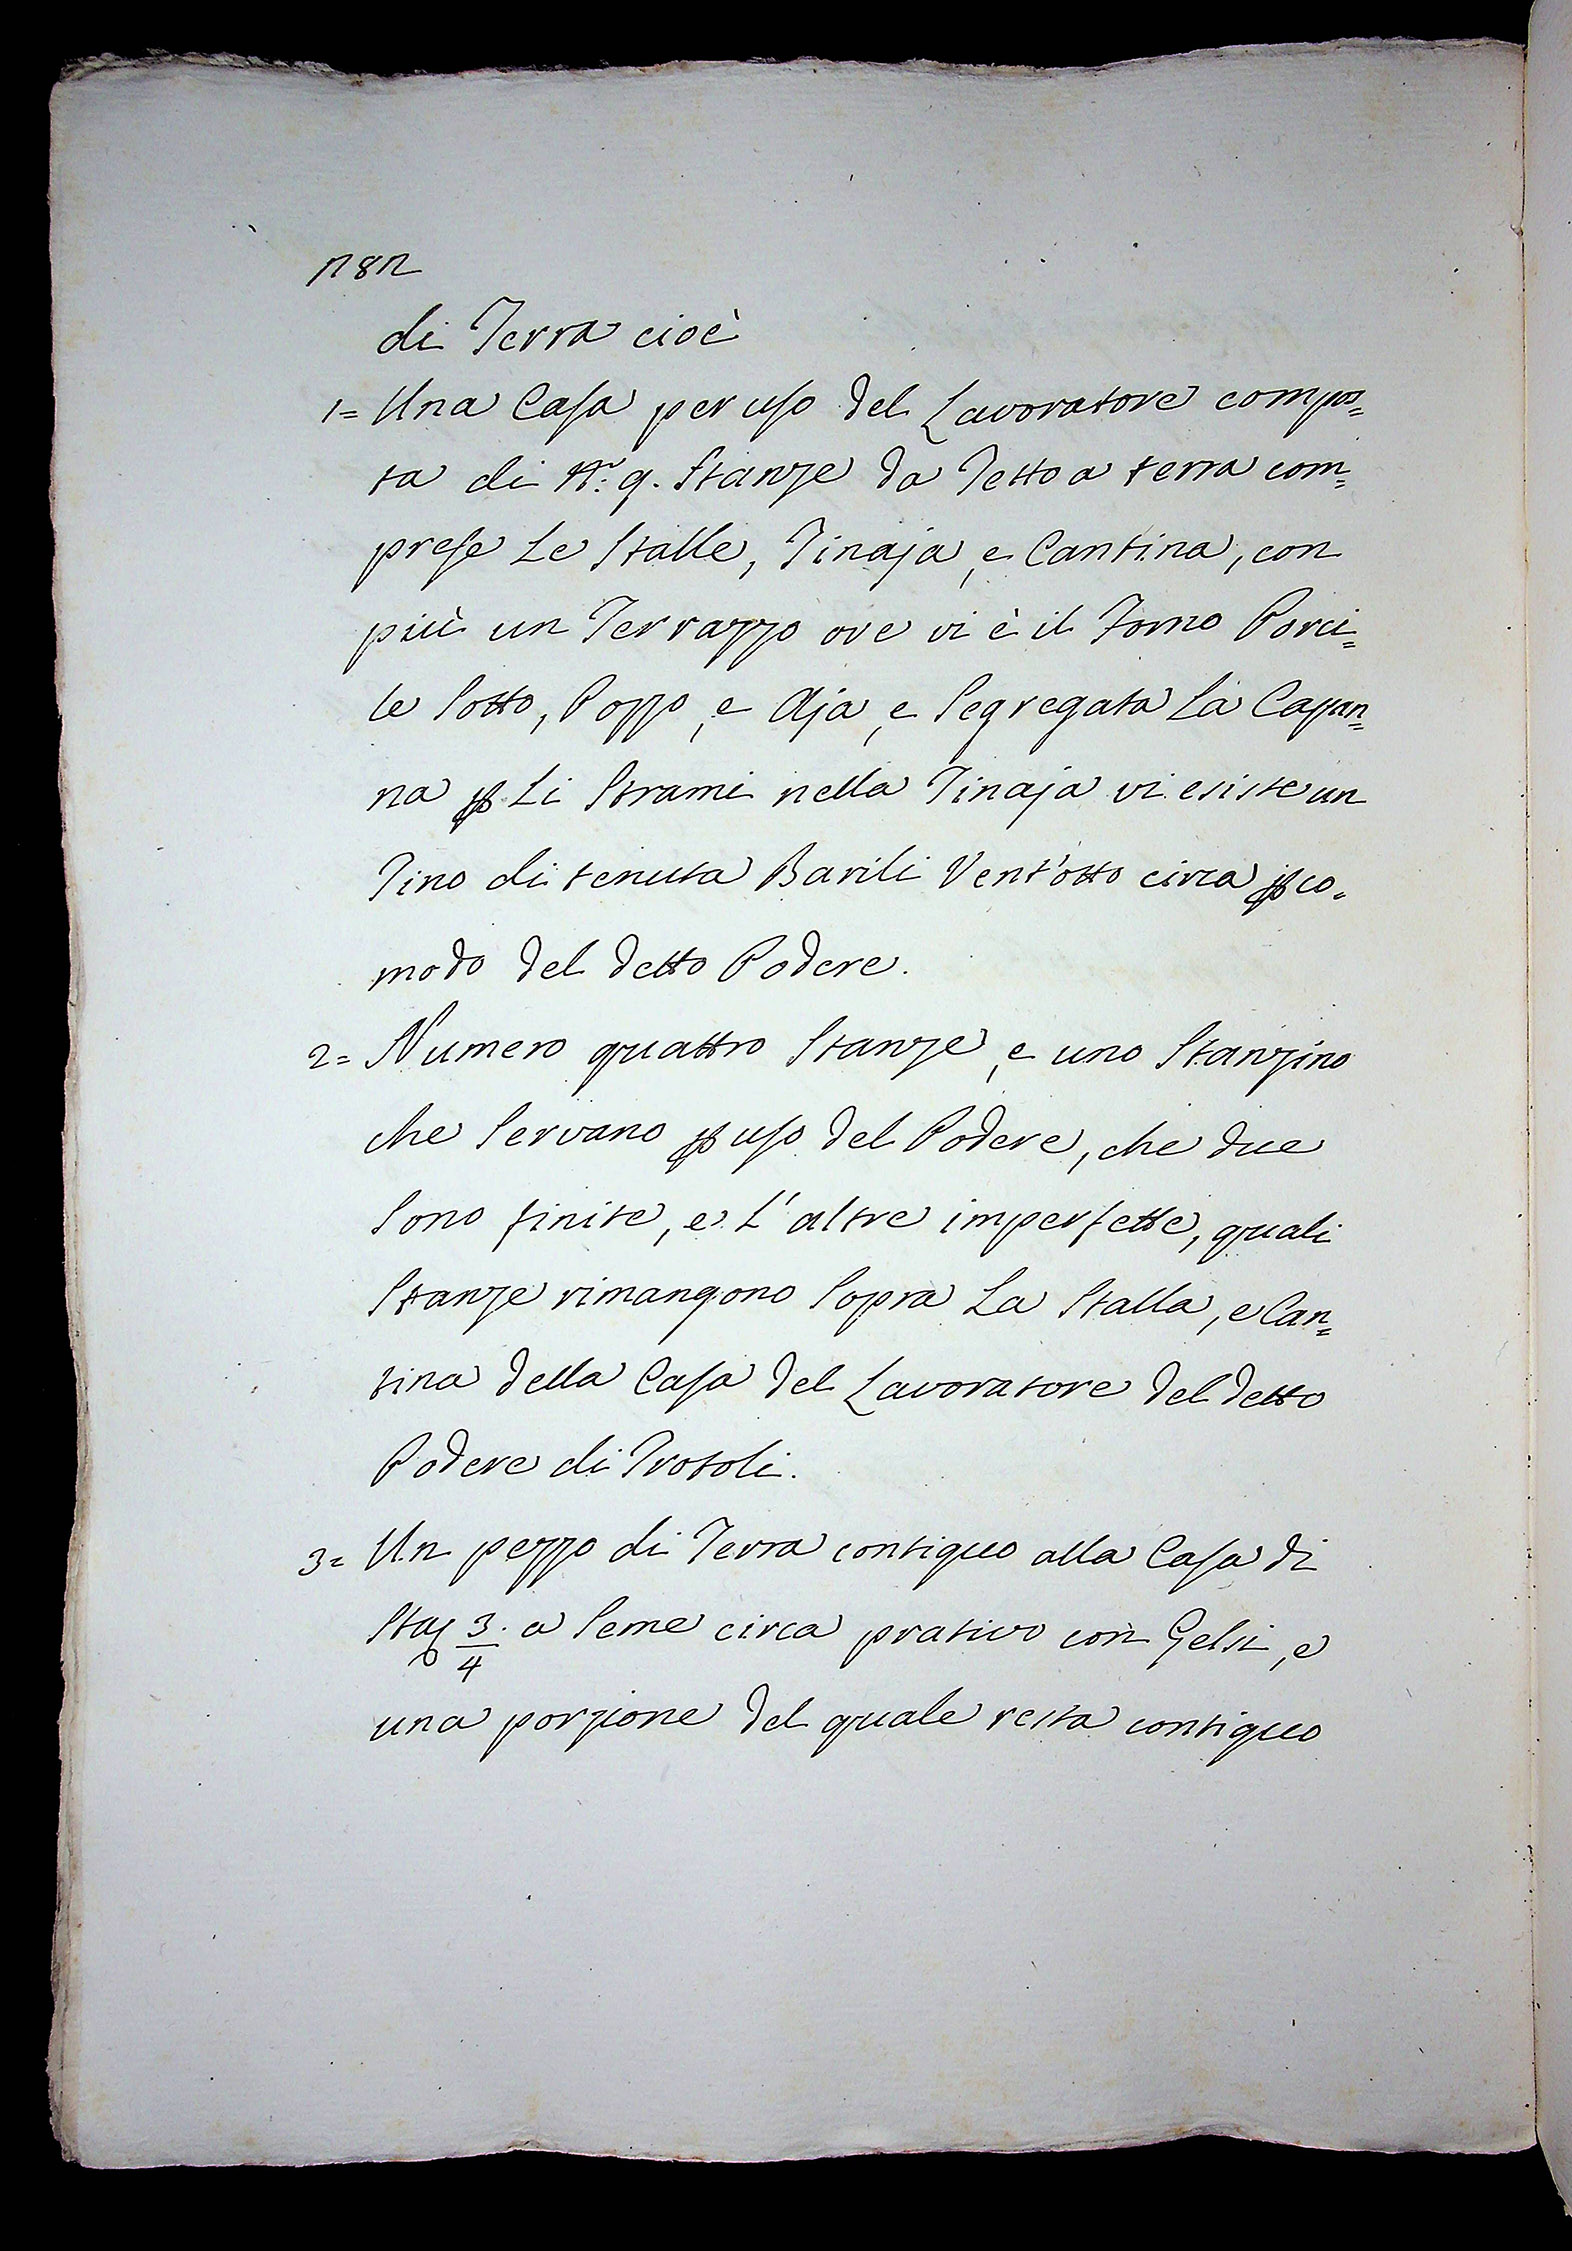 di Terra cioè
1= Una Casa per uso del Lavoratore compos=
ta di N.° 9. Stanze da Tetto a terra com=
prese Le Stalle, Tinaja, e Cantina, con
più un Terrazzo ove vi è il Forno Porci=
le Sotto, Pozzo, e Aja, e Segregata La Capan=
na ꝑ Li Strami nella Tinaja vi esiste un
Tino di tenuta Barili Vent'otto circa ꝑ co=
modo del detto Podere.
2= Numero quattro Stanze, e uno Stanzino
che Servano ꝑ uso del Podere, che due
Sono finite, e L'altre imperfette, quali
Stanze rimangono Sopra La Stalla, e Can=
tina della Casa del Lavoratore del detto
Podere di Trotoli.
3= Un pezzo di Terra contiguo alla Casa di
Sta 3/4. a Seme circa prativo con Gelsi, e
una porzione del quale resta contiguo